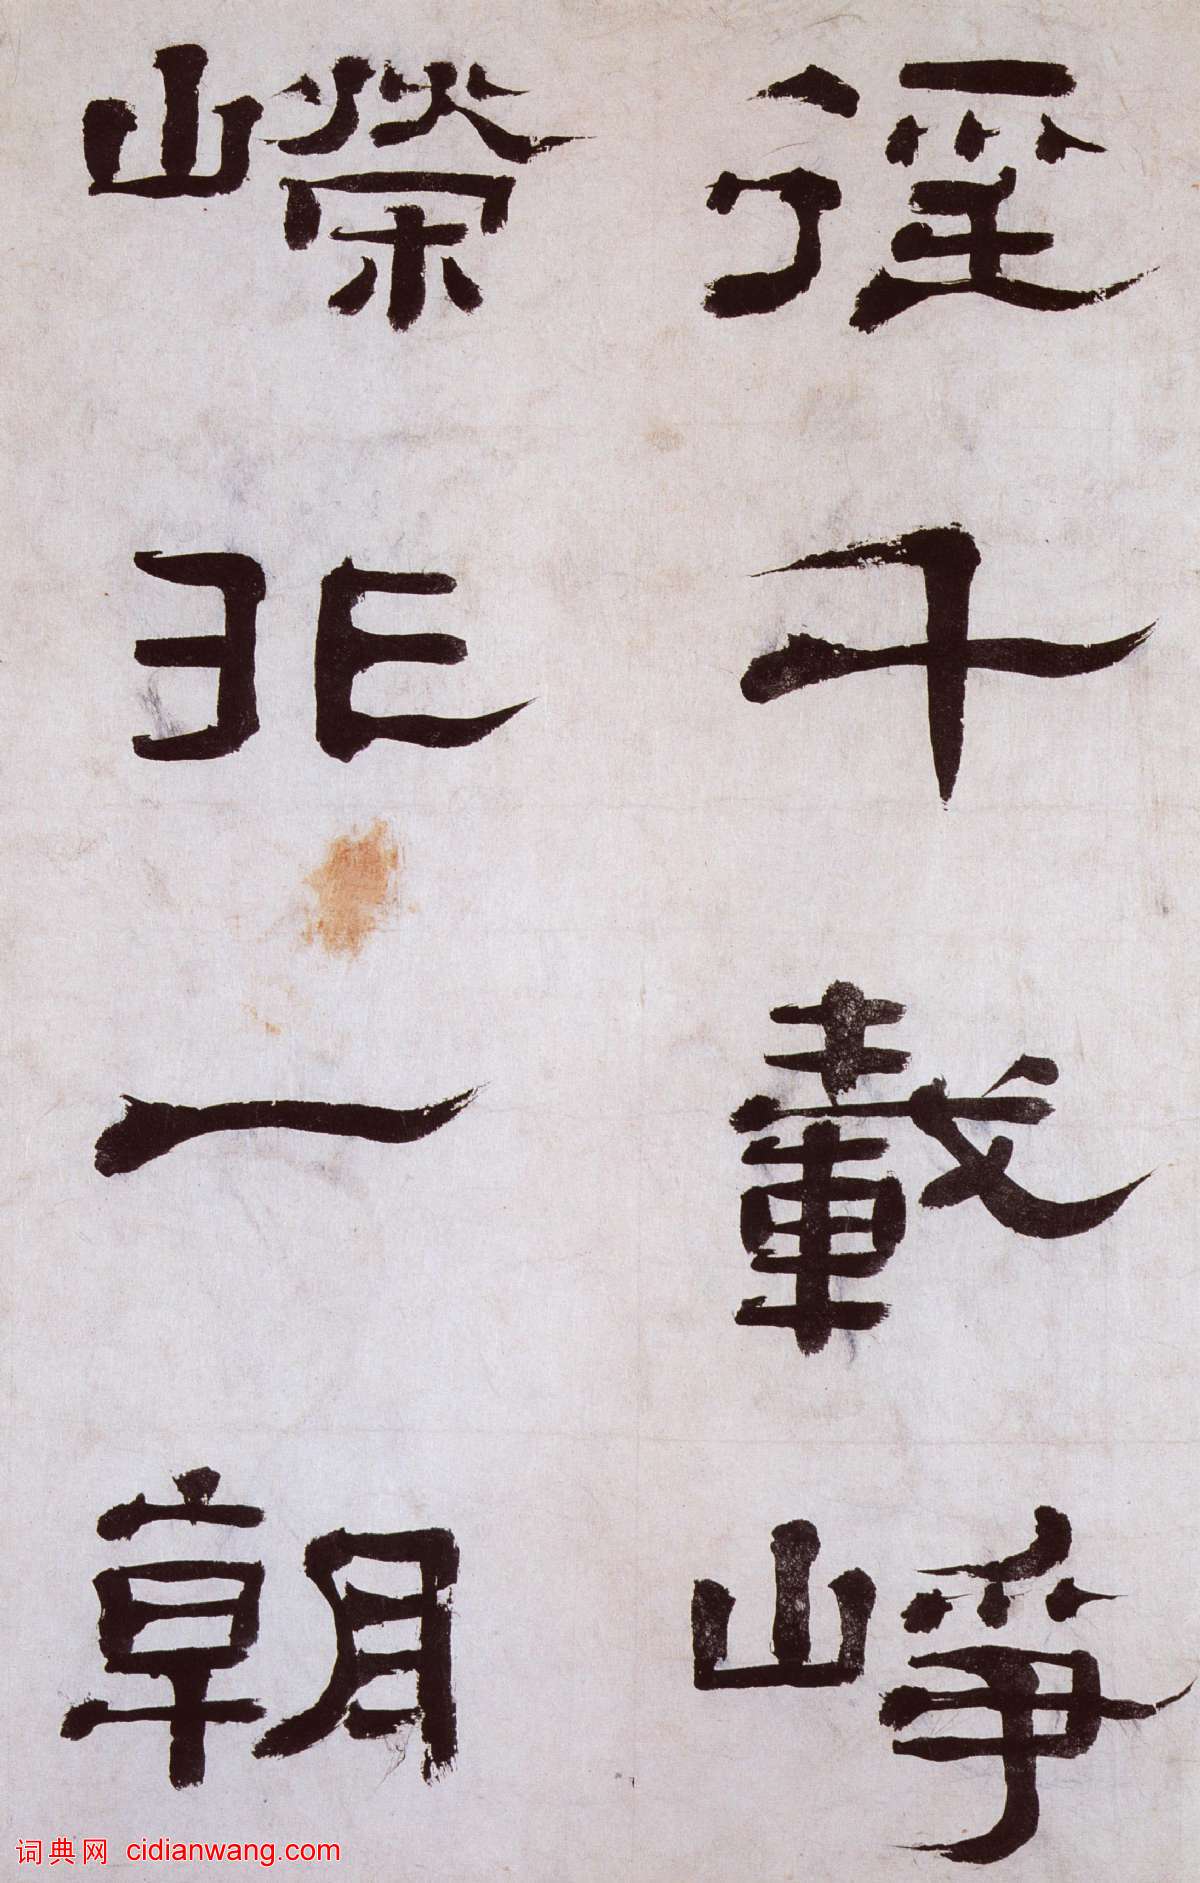 徑千載崢
嶸非一朝
词典网 cidianwang.com